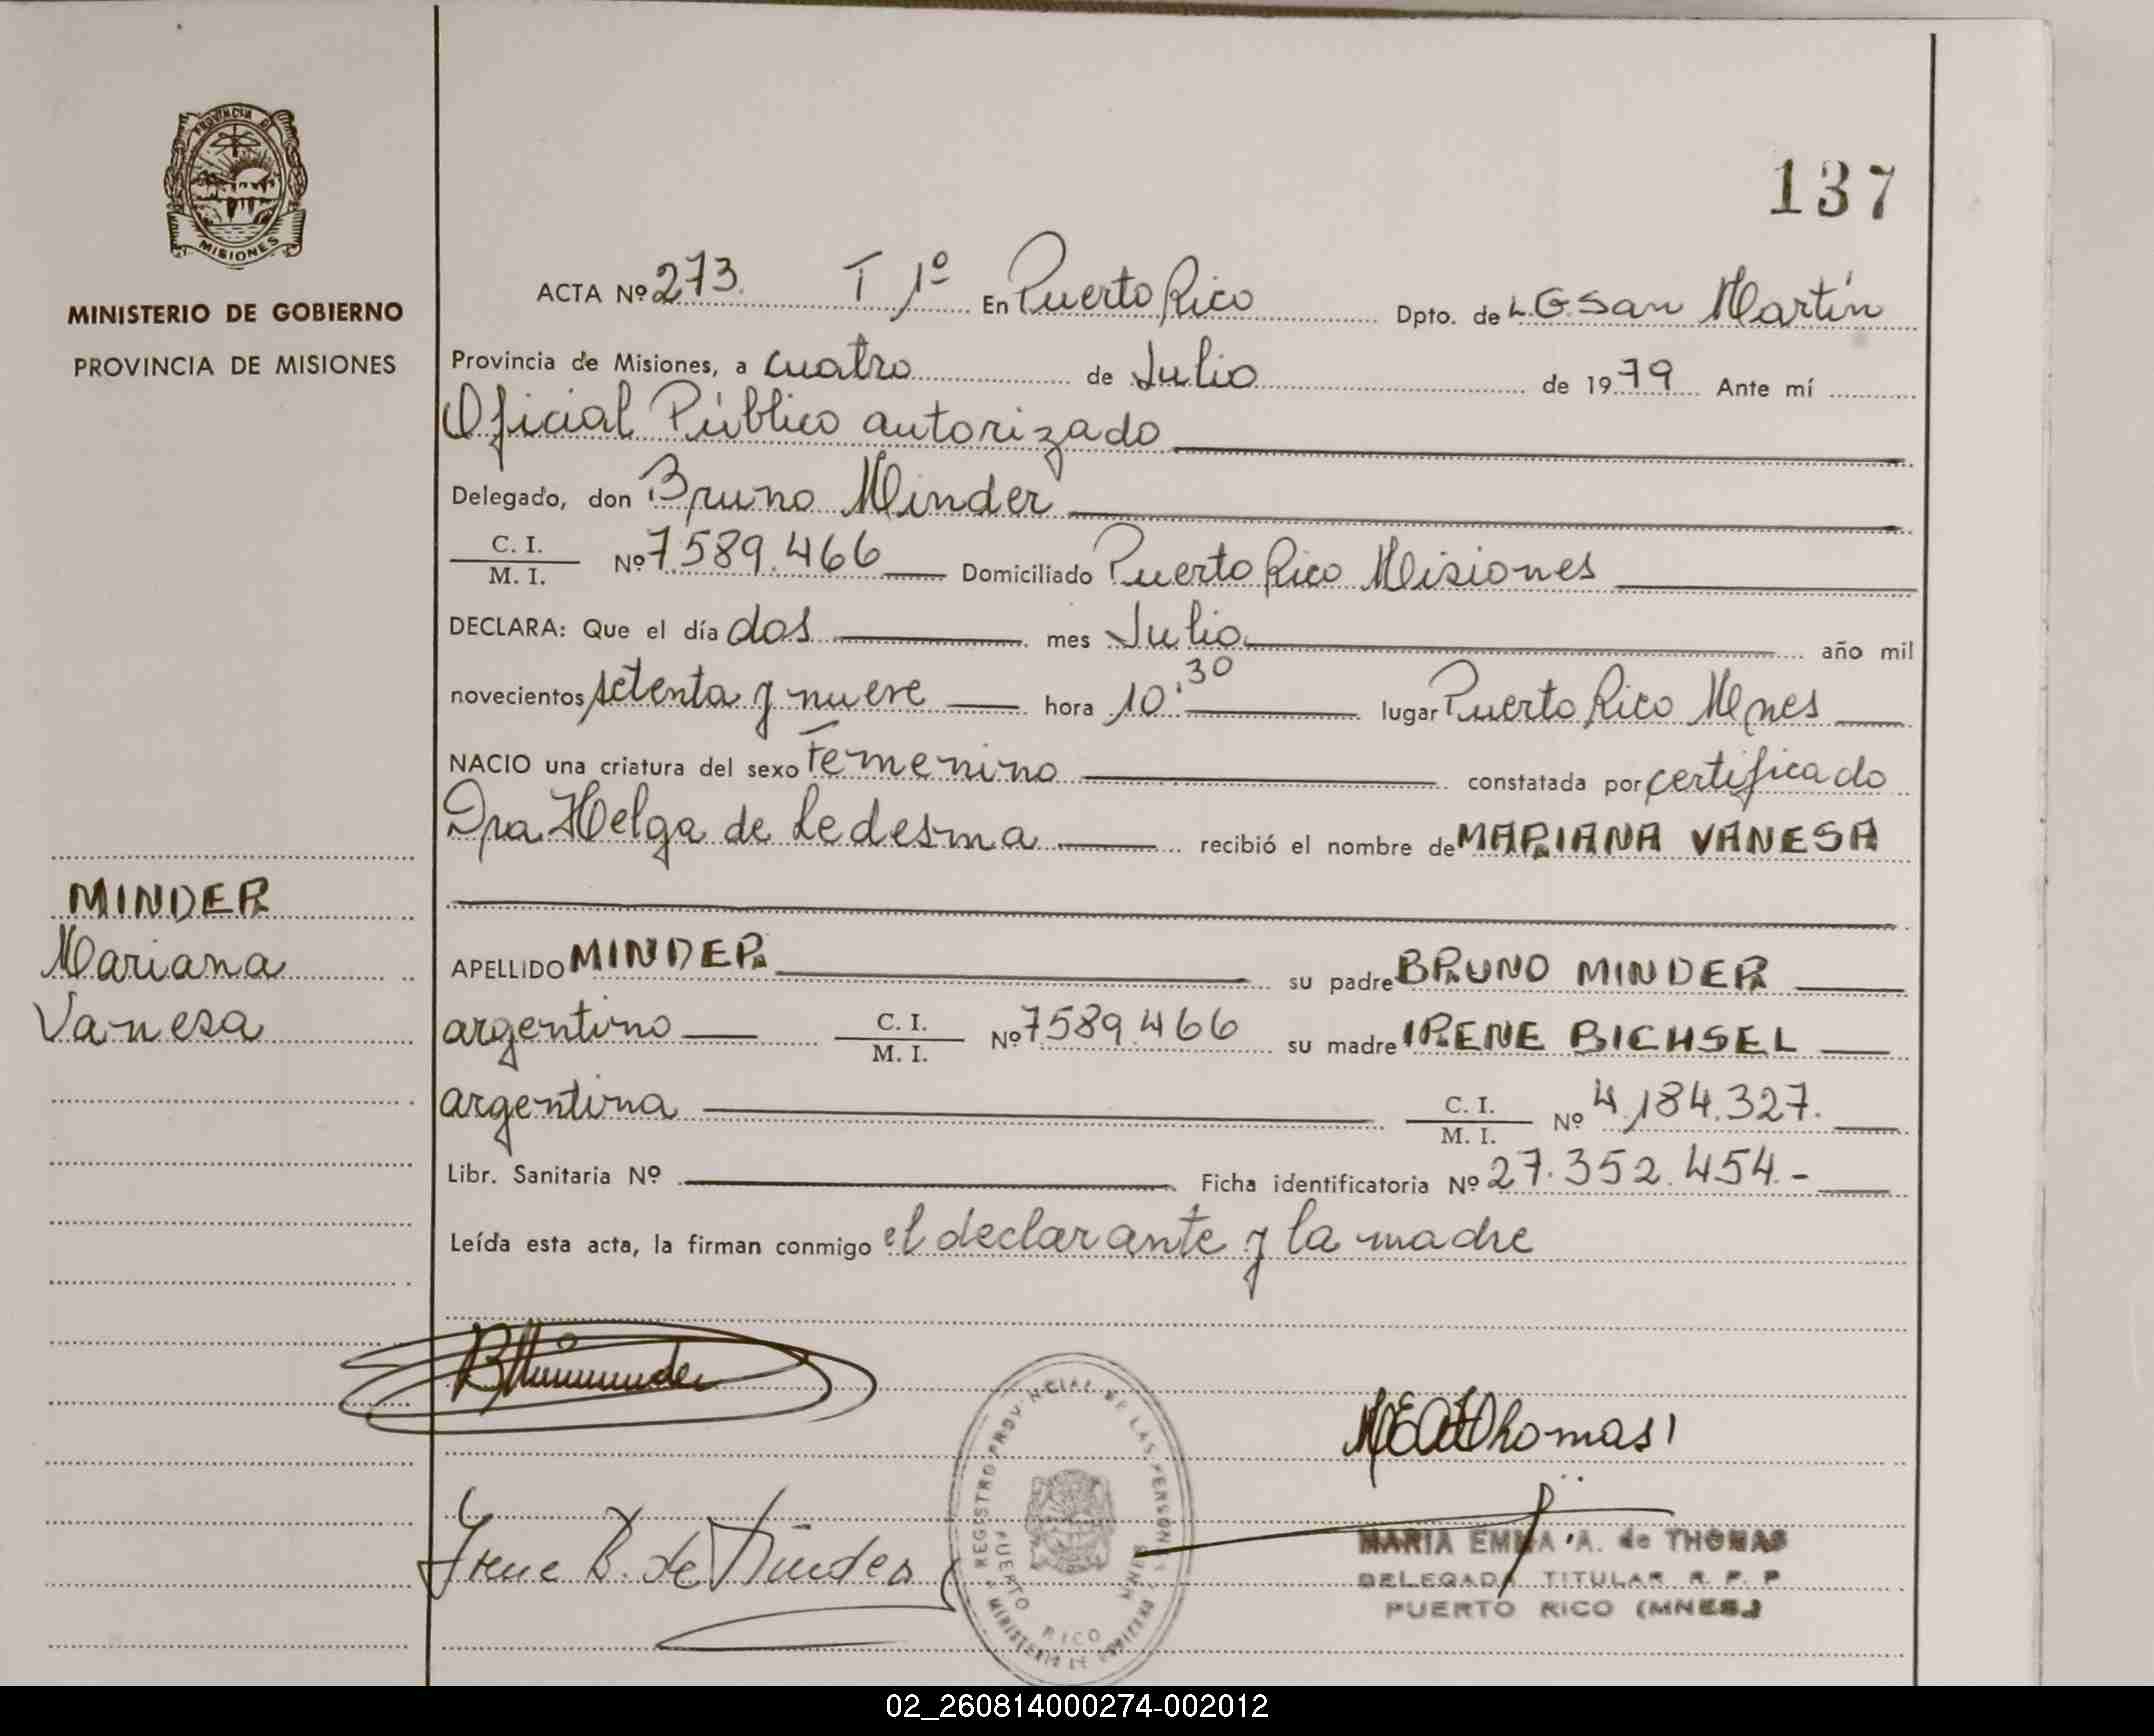 137
PROVINCIA DE
MISIONES
MINISTERIO DE GOBIERNO
PROVINCIA DE MISIONES
ACTA Nº 273. T 1º En Puerto Rico Dpto. de L.G.San Martín
Provincia de Misiones, a cuatro de Julio de 1979 Ante mí
Oficial Público autorizado
Delegado, don Bruno Minder
C. I.
M. I. Nº 7.589.466 Domiciliado Puerto Rico Misiones
DECLARA: Que el día dos mes Julio año mil
novecientos setenta y nueve hora 10:30 lugar Puerto Rico Mnes
NACIO una criatura del sexo Femenino constatada por certificado
Dra Helga de Ledesma recibió el nombre de MARIANA VANESA
MINDER
Mariana
Vanesa
APELLIDO MINDER su padre BRUNO MINDER
argentino C. I.
M. I. Nº 7589.466 su madre IRENE BICHSEL
argentina C. I.
M. I. Nº 4.184.327.
Libr. Sanitaria Nº Ficha identificatoria Nº 27.352.454.-
Leída esta acta, la firman conmigo el declarante y la madre
Irene B. de Minder
REGISTRO PROVINCIAL DE LAS PERSONAS
PUERTO RICO MNES
MINISTERIO DE GOBIERNO
MARIA EMMA A. de THOMAS
DELEGADA TITULAR R. P. P
PUERTO RICO (MNES.)
02_260814000274-002012